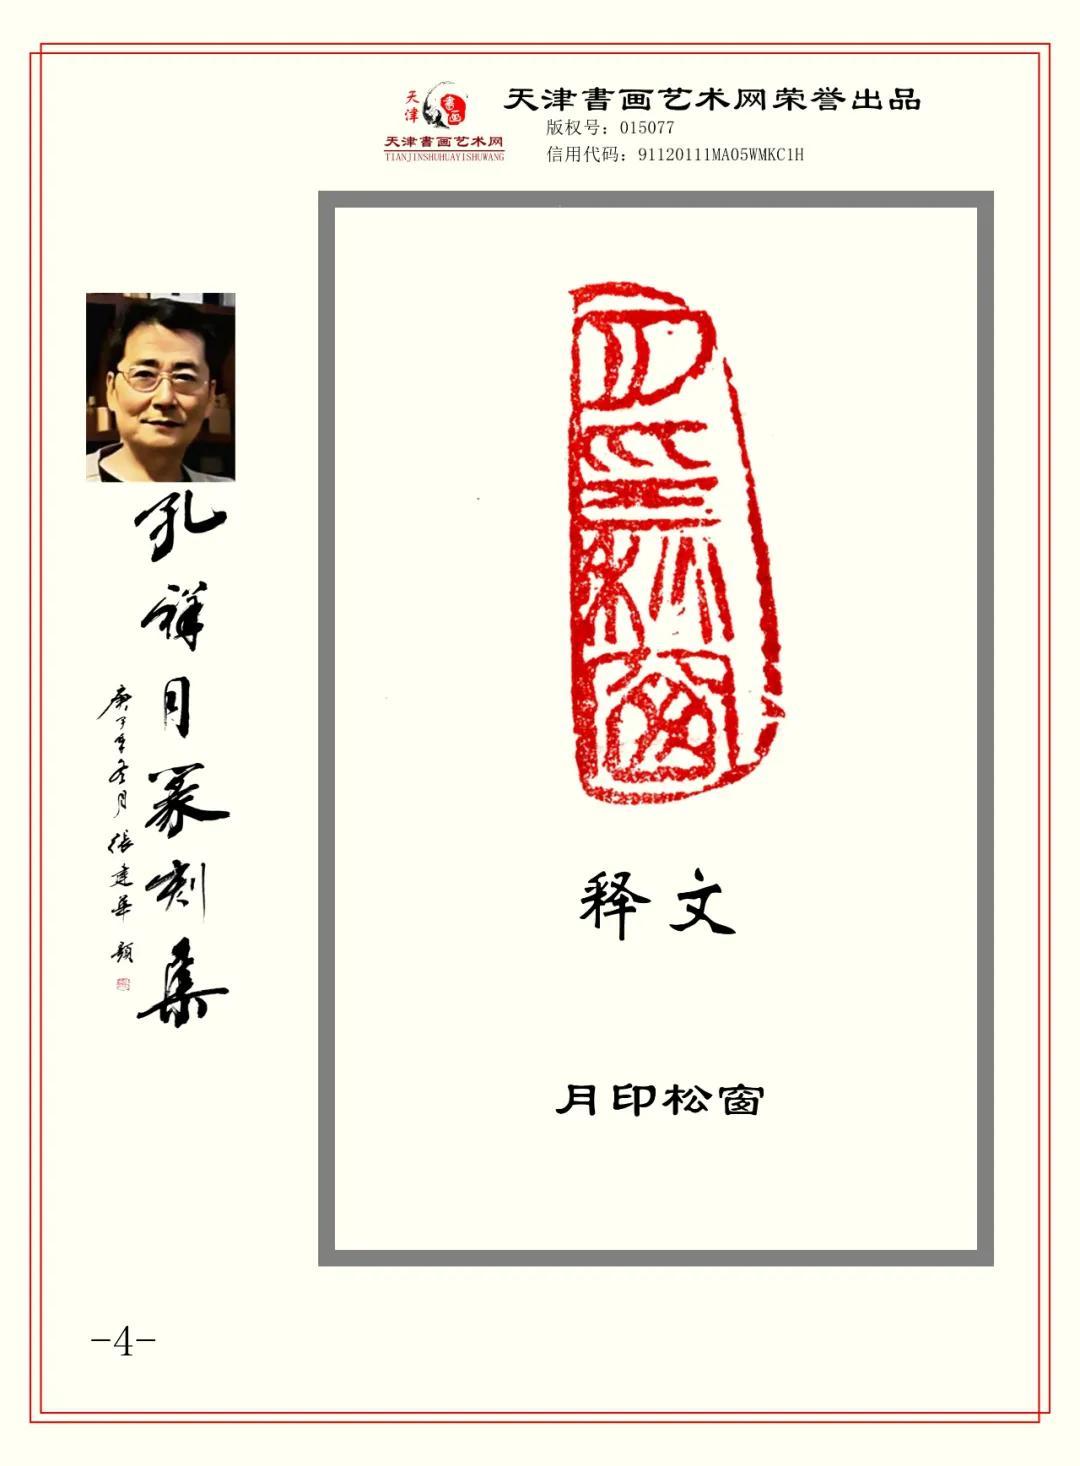 天津
書画
天津書画艺术网
TIANJINSHUHUAYISHUWANG
天津書画艺术网荣誉出品
版权号：015077
信用代码：91120111MA05WMKC1H
孔祥月篆刻集
庚子年冬月張建華題
月印松窗
释文
月印松窗
-4-